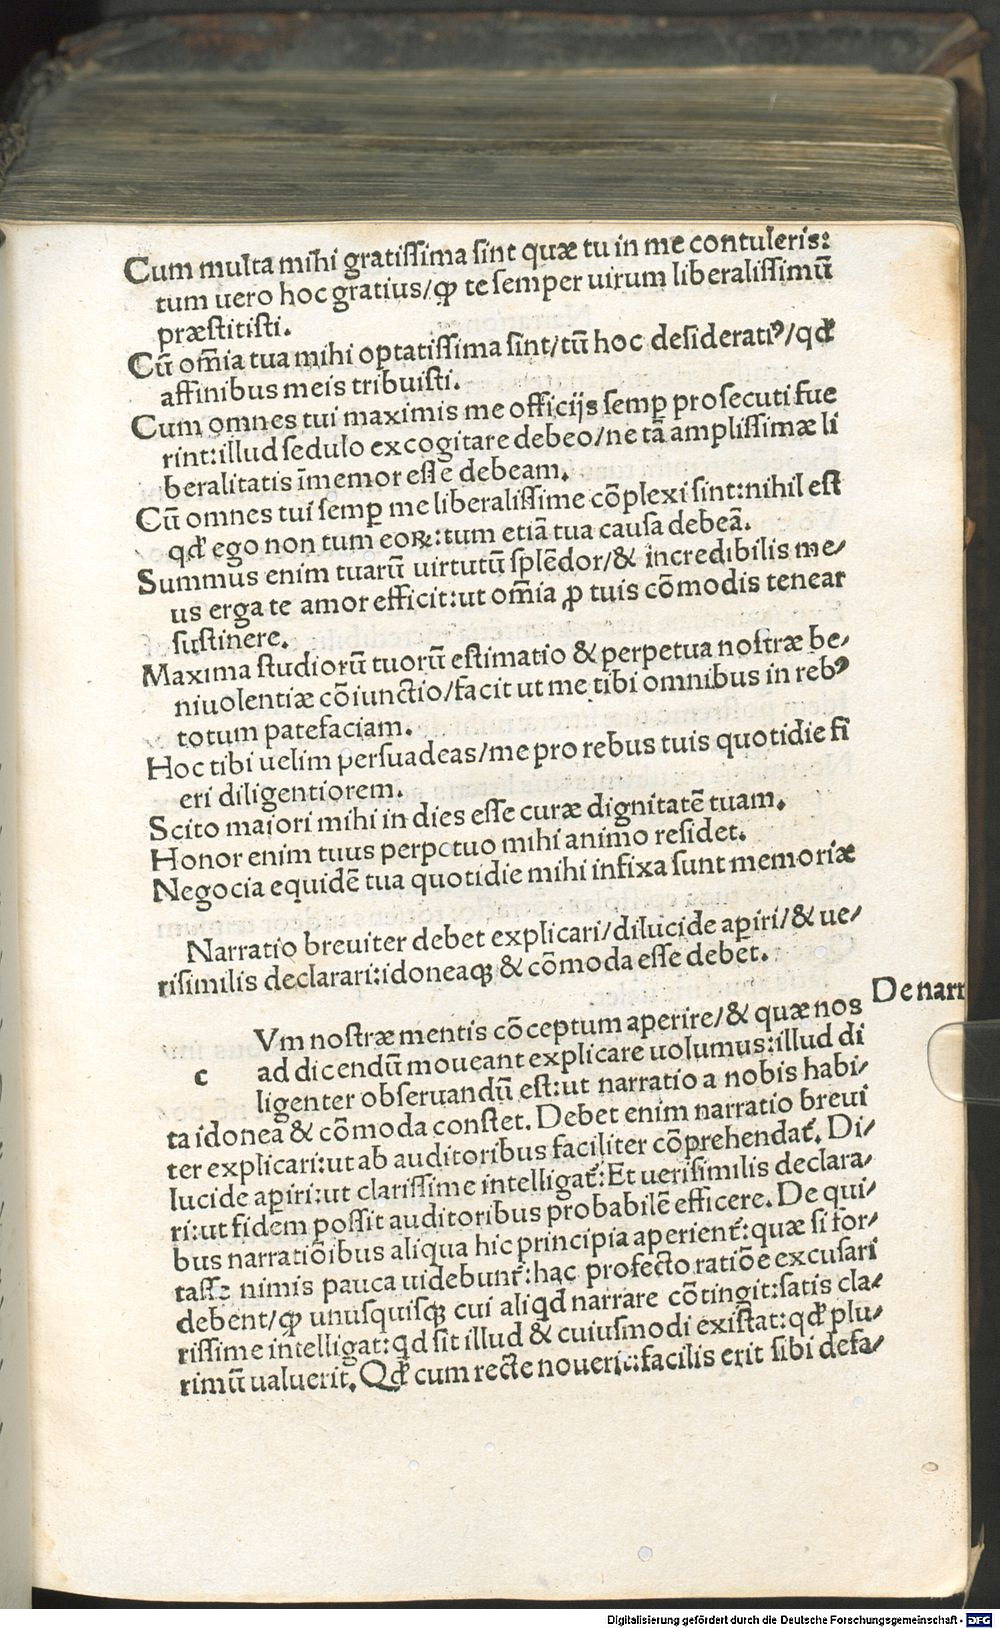 Cum multa mihi gratissima sint quæ tu in me contuleris:
tum uero hoc gratius/ꝙ te semper uirum liberalissimū
præstitisti.
Cū om̄ia tua mihi optatissima sint/tū hoc desideratiꝰ/qđ
affinibus meis tribuisti.
Cum omnes tui maximis me officijs semꝑ prosecuti fue
rint:illud sedulo excogitare debeo/ne tā amplissimæ li
beralitatis īmemor esse debeam.
Cū omnes tui semꝑ me liberalissime cōplexi sint:nihil est
qđ ego non tum eoꝝ:tum etiā tua causa debeā.
Summus enim tuarū uirtutū splēdor/& incredibilis me/
us erga te amor efficit:ut om̄ia ꝓ tuis cōmodis tenear
sustinere.
Maxima studiorū tuorū estimatio & perpetua nostræ be/
niuolentiæ cōiunctio/facit ut me tibi omnibus in rebꝰ
totum patefaciam.
Hoc tibi uelim persuadeas/me pro rebus tuis quotidie fi
eri diligentiorem.
Scito maiori mihi in dies esse curæ dignitatē tuam.
Honor enim tuus perpetuo mihi animo residet.
Negocia equidē tua quotidie mihi infixa sunt memoriæ
Narratio breuiter debet explicari/dilucide aꝑiri/& ue/
risimilis declarari:idoneaqꝫ & cōmoda esse debet.
De narr
Vm nostræ mentis cōceptum aperire/& quæ nos
c ad dicendū moueant explicare uolumus:illud di
ligenter obseruandū est:ut narratio a nobis habi/
ta idonea & cōmoda constet. Debet enim narratio breui
ter explicari:ut ab auditoribus faciliter cōprehendat᷑. Di/
lucide aꝑiri:ut clarissime intelligat᷑:Et uerisimilis declara/
ri:ut fidem possit auditoribus probabilē efficere. De qui/
bus narratiōibus aliqua hic principia aperient᷑:quæ si for/
tasse nimis pauca uidebunt᷑:hac profecto ratiōe excusari
debent/ꝙ unusquisqꝫ cui aliqd narrare cōtingit:satis cla/
rissime intelligat:qd sit illud & cuiusmodi existat:qđ plu/
rimū ualuerit. Qđ cum recte nouerit:facilis erit sibi defa/
Digitalisierung gefördert durch die Deutsche Forschungsgemeinschaft - DFG